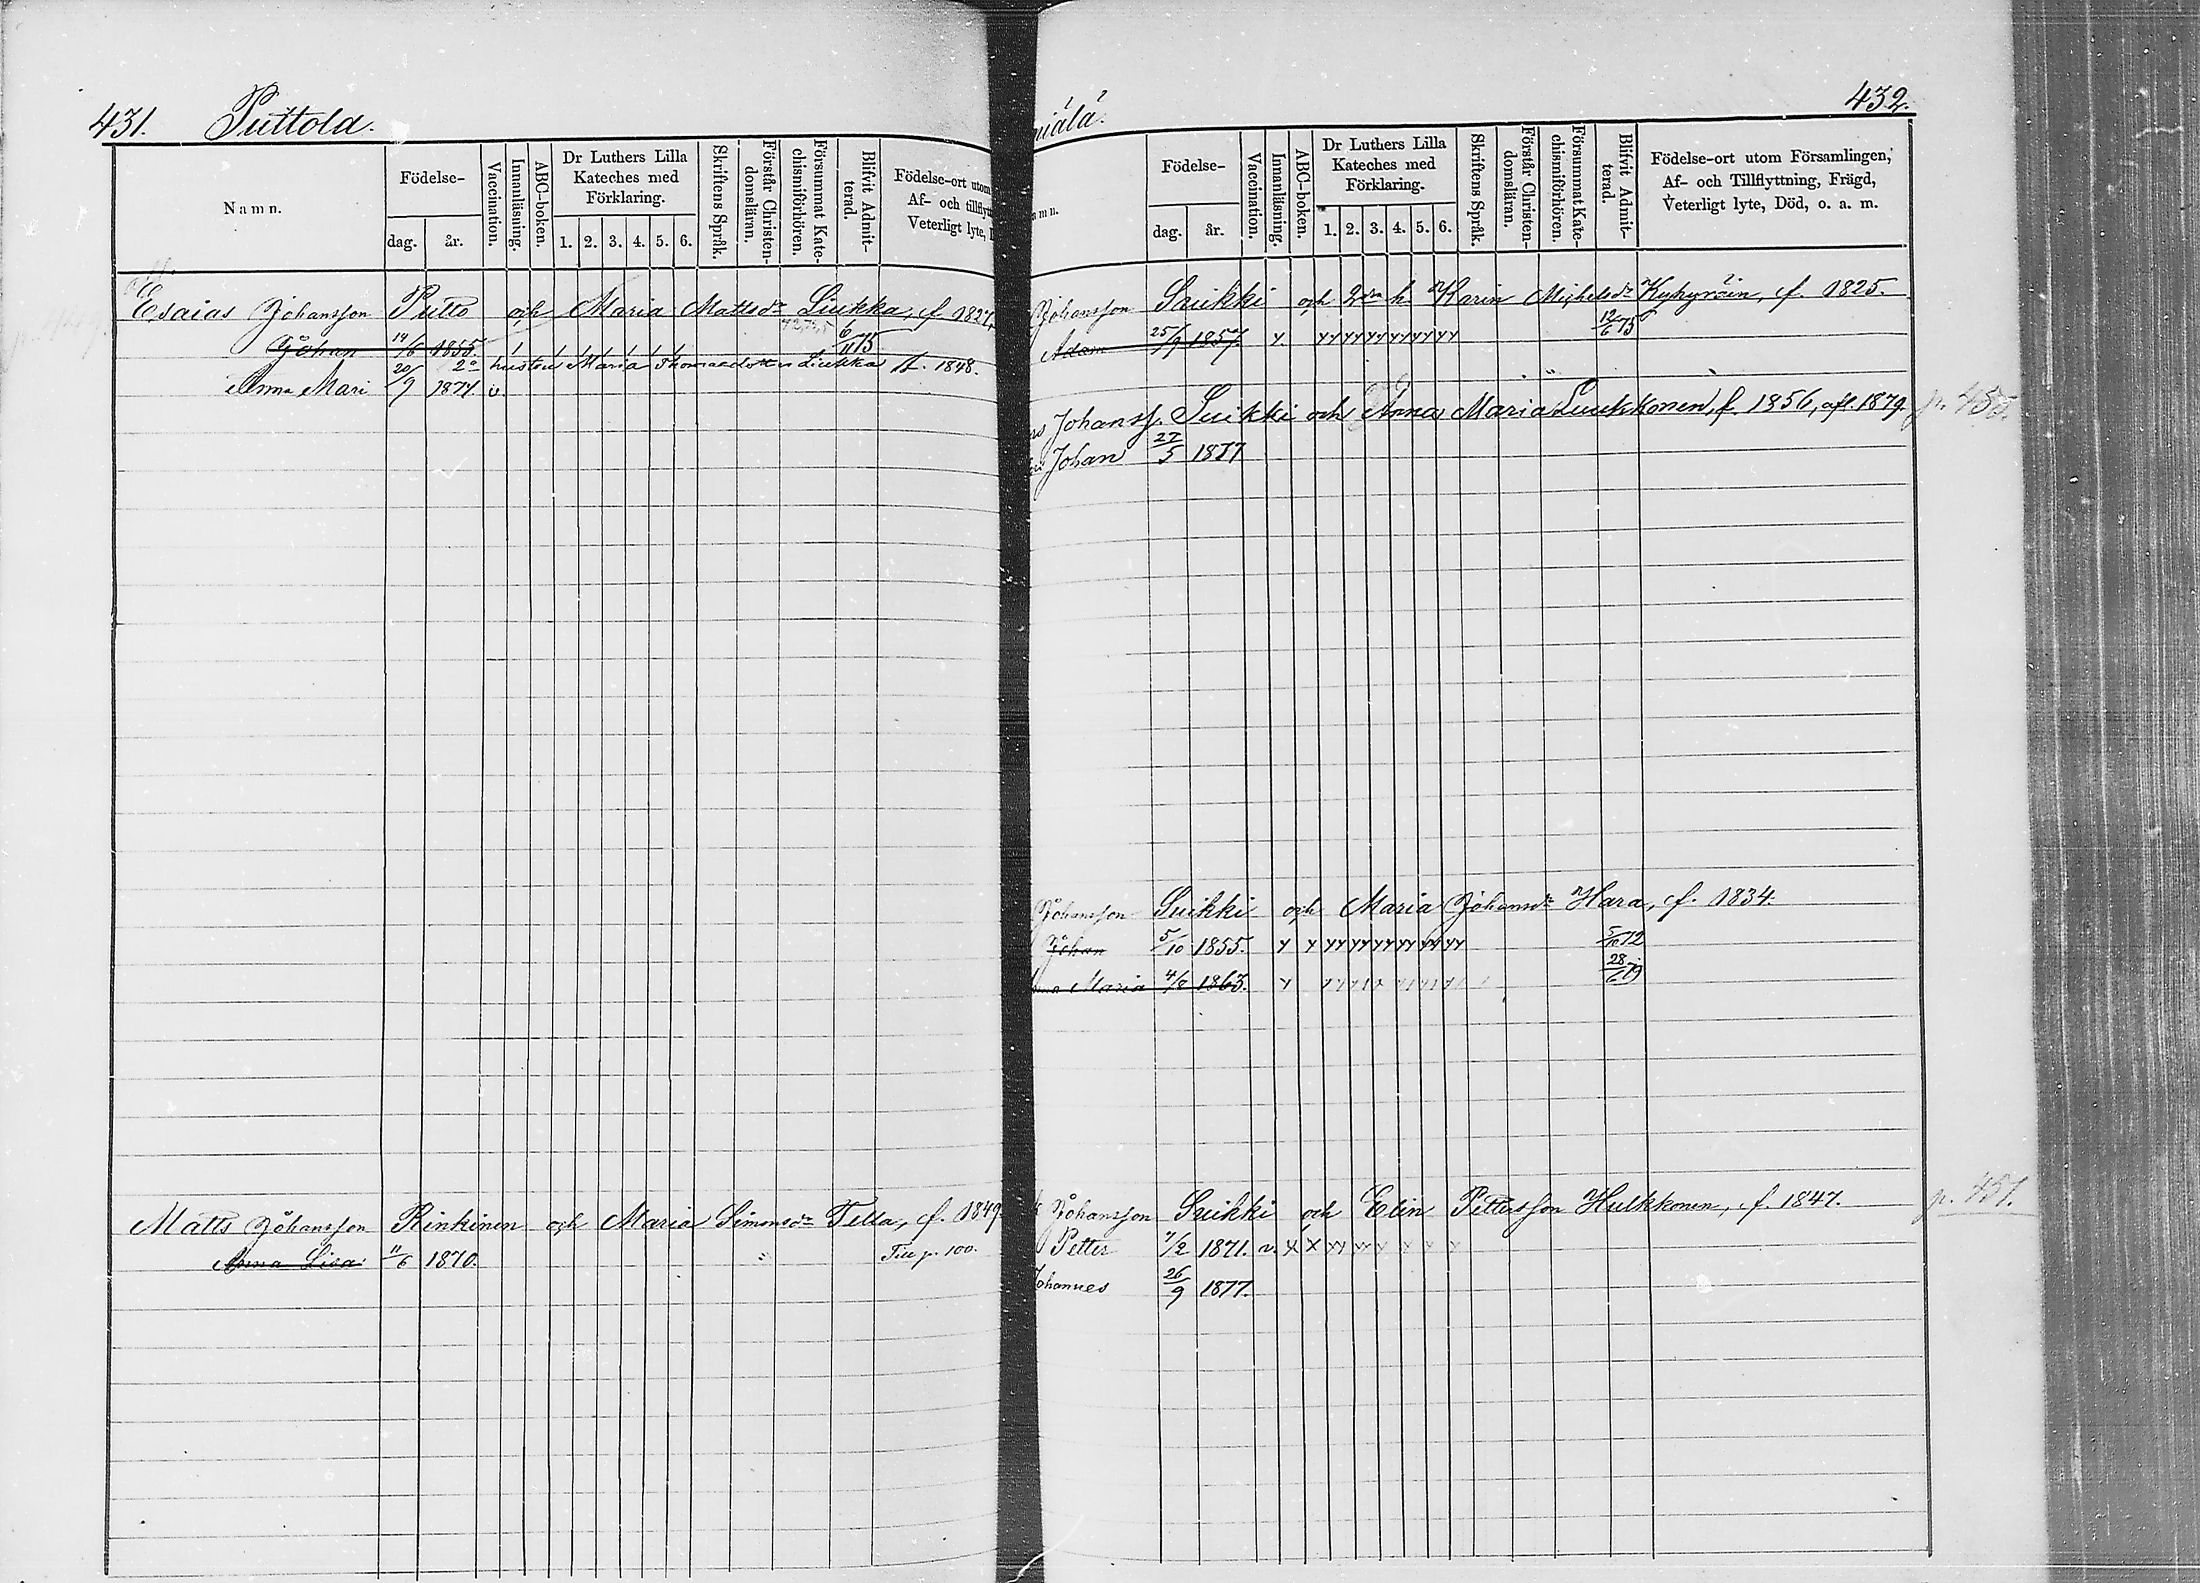 431. Puttola.
Namn.
Födelse-
dag. år.
Vaccination.
Innanläsning.
ABC-boken.
Dr Luthers Lilla
Kateches med
Förklaring.
1. 2. 3. 4. 5. 6.
Skriftens Språk.
Förstår Christen-
domsläran.
Försummat Kate-
chismiförhören.
Blifvit Admit-
terad.
Födelse-ort utom
Af- och tillflytt
Veterligt lyte,
Esaias Johansson Putto och Maria Mattsdr Liukka, f. 1827,
Johan 14/6 1855. 6/11 75
2o hustru Maria Thomasdotter Liukka f. 1848.
Anna Mari 20/9 1874. v.
Matts Johansson Rinkinen och Maria Simonsdr Tella, f. 1849
Anna Lisa 11/6 1870. Till p. 100.
432.
niälä.
mn.
Födelse-
dag. år.
Vaccination.
Innanläsning.
ABC-boken.
Dr Luthers Lilla
Kateches med
Förklaring.
1. 2. 3. 4. 5. 6.
Skriftens Språk.
Förstår Christen-
domsläran.
Försummat Kate-
chismiförhören.
Blifvit Admit-
terad.
Födelse-ort utom Församlingen,
Af- och Tillflyttning, Frägd,
Veterligt lyte, Död, o. a. m.
Johansson Suikki och 2dra h. Karin Michelsdr Kyhyräin, f. 1825.
Adam 25/9 1857. 12/6 75
Johanss. Suikki och Anna Maria Luukkonen, f. 1856, afl. 1879. p. 455.
Johan 27/5 1877
Johansson Suikki och Maria Johansdr Hara, f. 1834.
Johan 5/10 1855. 5/10 72
Maria 4/8 1863. 28/6 79
Johansson Suikki och Elin Pettersson Hulkkonen, f. 1847. p. 457.
Petter 7/2 1871. v.
Johannes 26/9 1877.